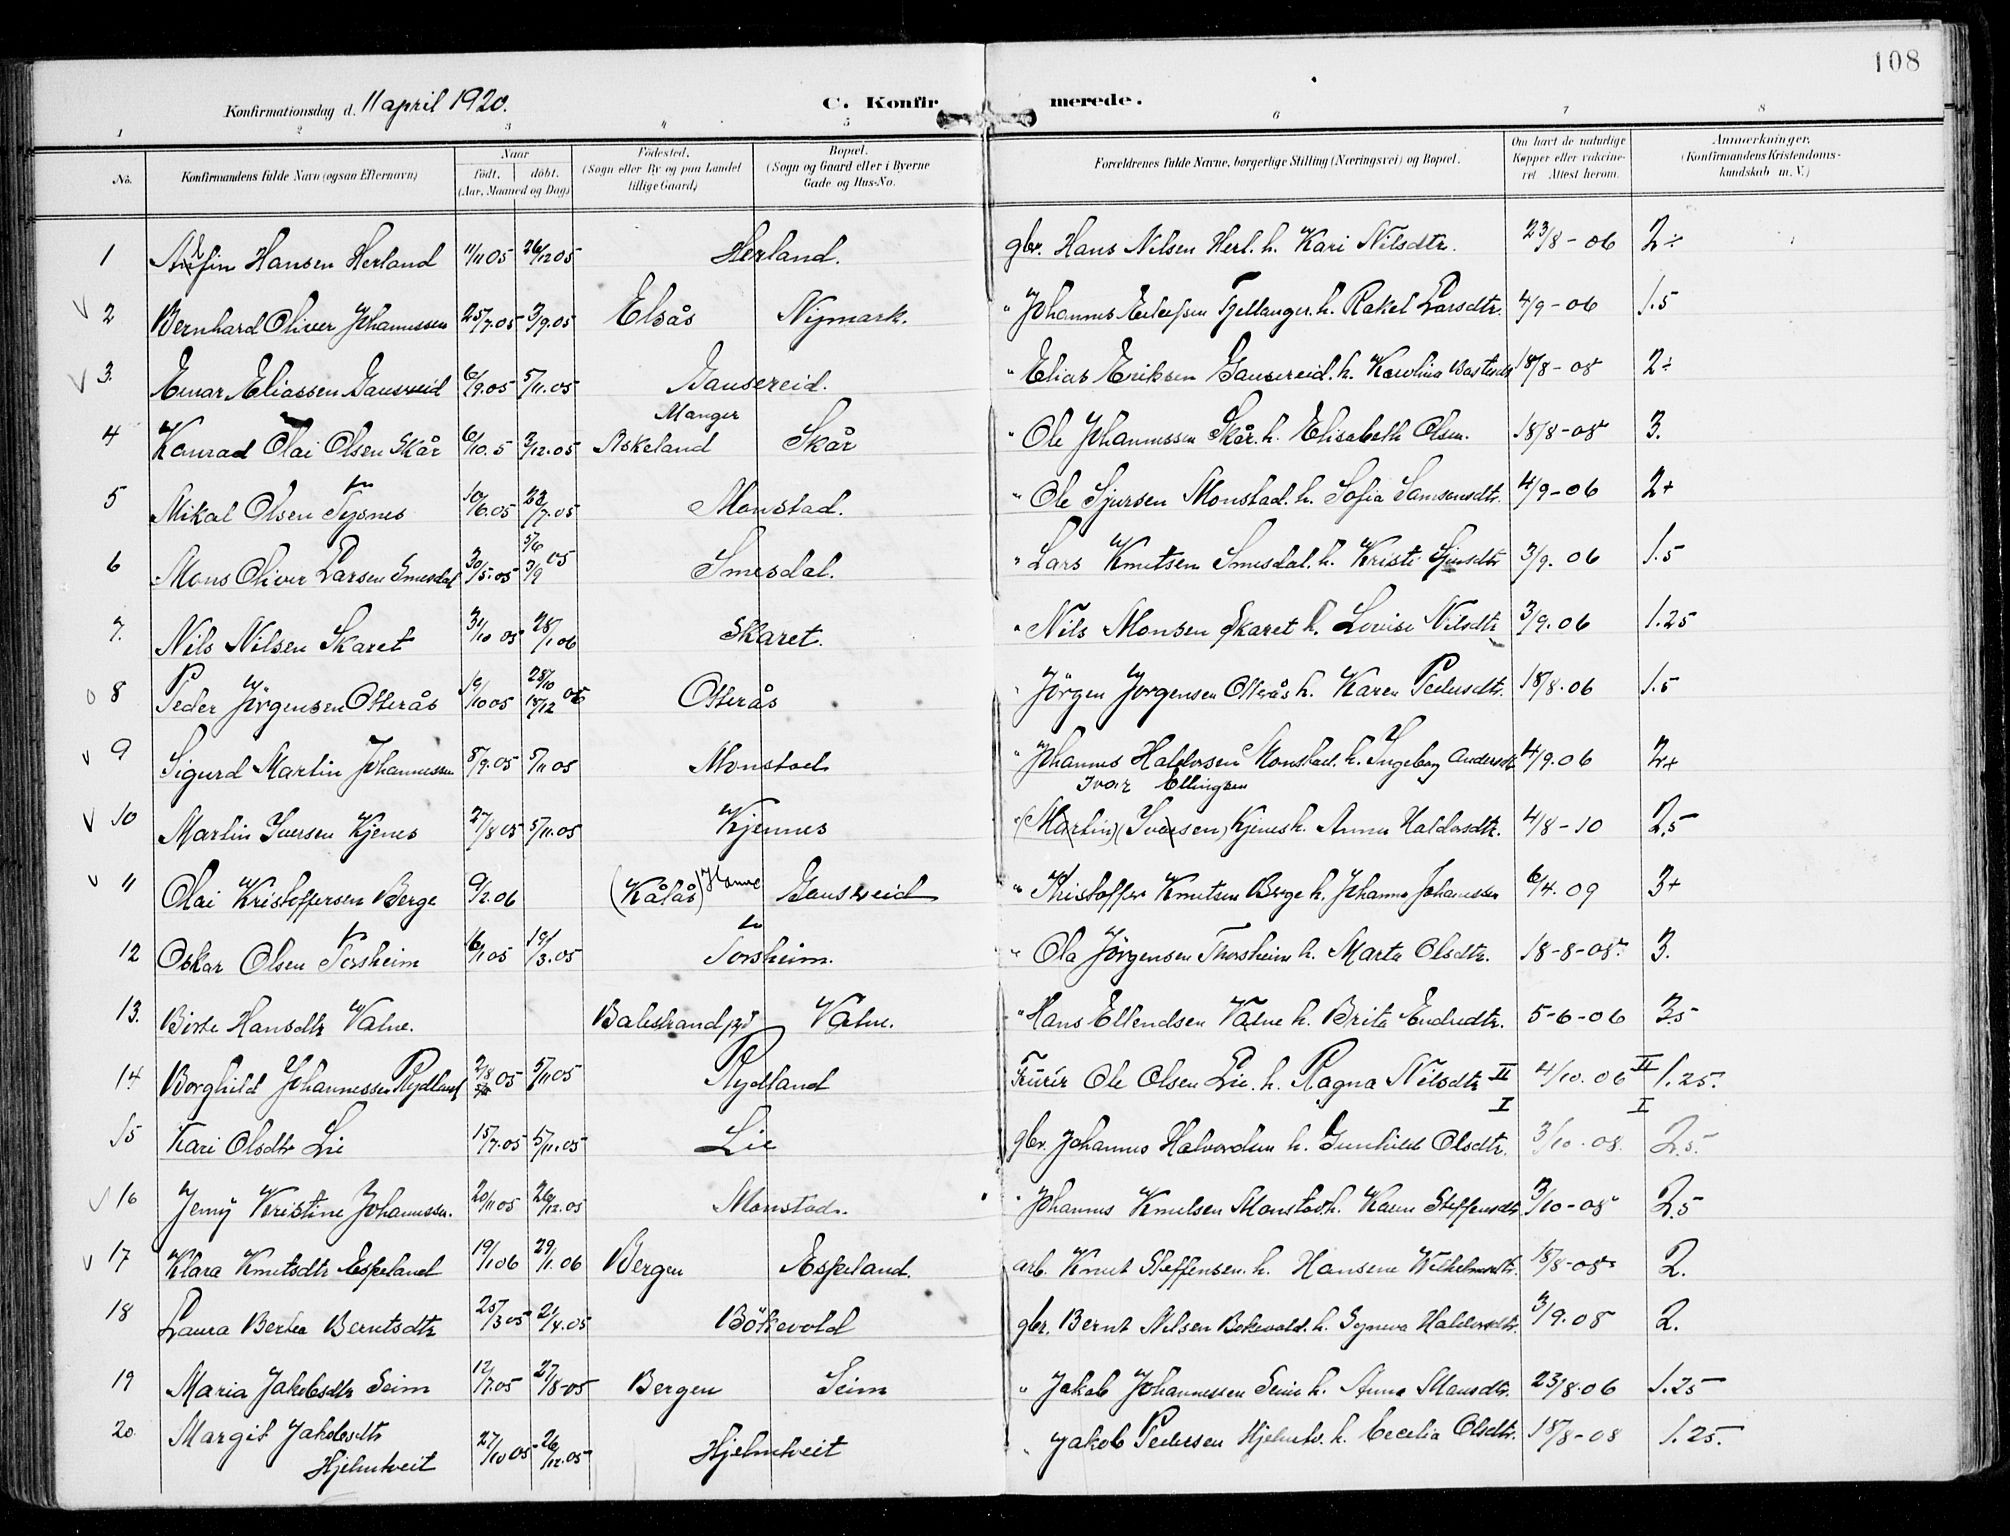 108
Konfirmationsdag d. 11 april 1920. C. Konfirmerede.
1 2 3 4 5 6 7 8
No. Konfirmandens fulde Navn (ogsaa Efternavn) Naar født. døbt. (Aar, Maaned og Dag) Fødested. (Sogn eller By og paa Landet tillige Gaard) Bopæl. (Sogn og Gaard eller i Byerne Gade og Hus-No. Forældrenes fulde Navne, borgerlige Stilling (Næringsvei) og Bopæl. Om havt de naturlige Kopper eller vakcineret. Attest herom. Anmærkninger. (Konfirmandens Kristendomskundskab m. V.)
1 Hansen Herland 11/11 05 26/12 05 Herland. gbr. Hans Nilsen Herl. h. Kari Nilsdtr. 23/8-06 2÷
v 2 Bernhard Oliver Johannessen 25/7.05 3/9.05 Elsås Nymark. " Johannes Fjellanger. h. Rakel Larsdtr. 4/9-06 1.5
v 3. Einar Eliassen Gausereid 6/9.05 5/11.05 Gausereid. " Elias Eriksen Gausereid. h. Karolina 18/8-08 2÷
4 Konrad Olai Olsen Skår 6/10.5 3/12.05 Manger Askeland Skår " Ole Johannessen Skår. h. Elisabeth Olsen. 18/8-08 3.
5 Mikal Olsen Tysnes 10/6.05 23/7.05 Monstad. " Ole Sjursen Monstad. h. Sofia Samsonsdtr. 4/9-06 2+
6 Mons Oliver Larsen Smesdal 30/5.05 5/6 3/9 05 Smesdal. " Lars Knutsen Smesdal. h. Kristi Sjursdtr 3/9.06 1.5
7. Nils Nilsen Skaret 31/10 05 28/1 06 Skaret. " Nils Monsen Skaret h. Lovise Nilsdtr 3/9.06 1.25
o 8 Peder Jörgensen Otterås 19/10 05 28/10 17/12 05 Otterås " Jörgen Jorgensen Otterås h. Karen Pedersdtr. 18/8.06 1.5
v 9 Sigurd Martin Johannessen 8/9.05 5/11 05 Monstad " Johannes Haldorsen Monstad. h. Ingeborg Andersdtr 4/9.06 2+
Ivar Ellingsen
v 10 Martin Iversen Kjenes 27/8 05 5/11.05 Kjennes " (Martin) (Iversen) Kjenes h. Anna Haldorsdtr. 4/8-10 2,5
v 11 Olai Kristoffersen Berge 9/2.06 (Kålås) Gausereid " Kristoffer Knutsen Berge h. Johanna Johannssen 6/4.09 3+
12 Oskar Olsen Torsheim 16/1 05 19/3.05 Torsheim. " Ola Jörgensen Thorsheim h. Marta Olsdtr. 18-8-08 3.
13. Birte Hansdtr Valne. Balestrand Valne. " Hans Ellendsen Valne h. Brita Endredtr. 5-6-06 3.5
14 Borghild Johannessen Rydland 2/8 05 5/11 05 Rydland Ole Olsen Lie. h. Ragna Nilsdtr II 4/10.06 II 1.25.
I I
15 Kari Olsdtr Lie 15/7.05 5/11.05 Lie gbr. Johannes Halvordsen h. Gunhild Olsdtr. 3/10-08. 2.5.
v 16 Jenny Kristine Johannssen. 20/11 05 26/12.05 Monstad. " Johannes Knutsen Monstad. h. Karen Steffensdtr 3/10-08 2.5
v 17 Klara Knutsdtr Espeland 19/1 06 29/1.06 Bergen Espeland. arb. Knut Steffensen. h. Hansene Wilhelmsdtr. 18/8-08 2.
18 Laura Berta Berntsdtr 25/3 05 21/4.05 Bökevold gbr. Bernt Nilsen Bokevold. h. Synneva Haldorsdtr. 3/9.08 2.
19 Maria Jakobsdtr Seim 12/7.05 27/8-05 Bergen Seim " Jakob Johannessen Seim h. Anna Mansdtr. 23/8.06 1.25
20 Margit Jakobsdtr
Hjelmtveit 27/10 05 26/12.05 Hjelmtveit " Jakob Pedersen Hjelmtv. h. Cecelia Olsdtr. 18/8-08 1.25.